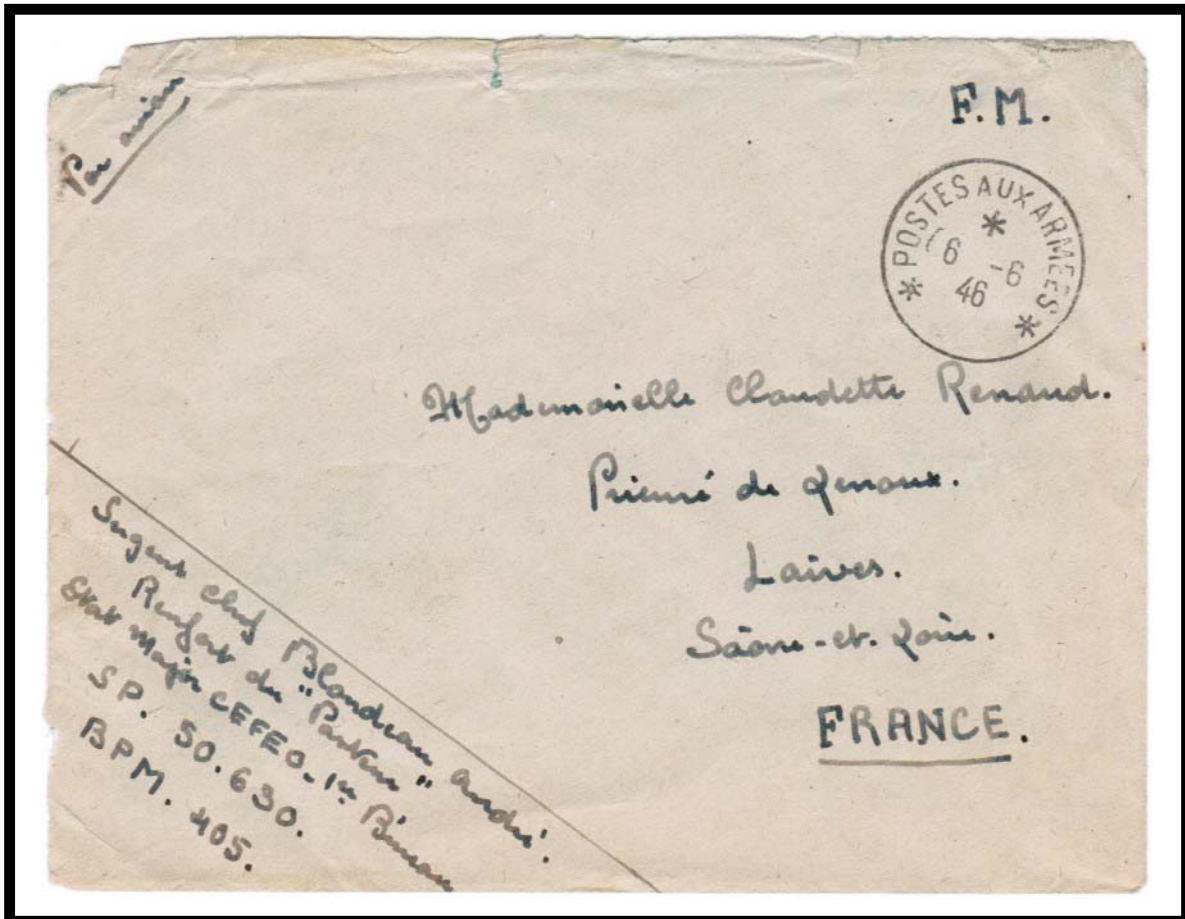 Par avion
F.M.
* POSTES AUX ARMEES *
*
6 -6
46
Mademoiselle Claudette Renaud.
Prieuré de Lenoux.
Laives.
Saône-et-Loire.
FRANCE.
Sergent Chef Blondeau André.
Renfort du "Pasteur"
Etat Major CEFEO - 1er Bureau
SP. 50.630.
BPM. 405.